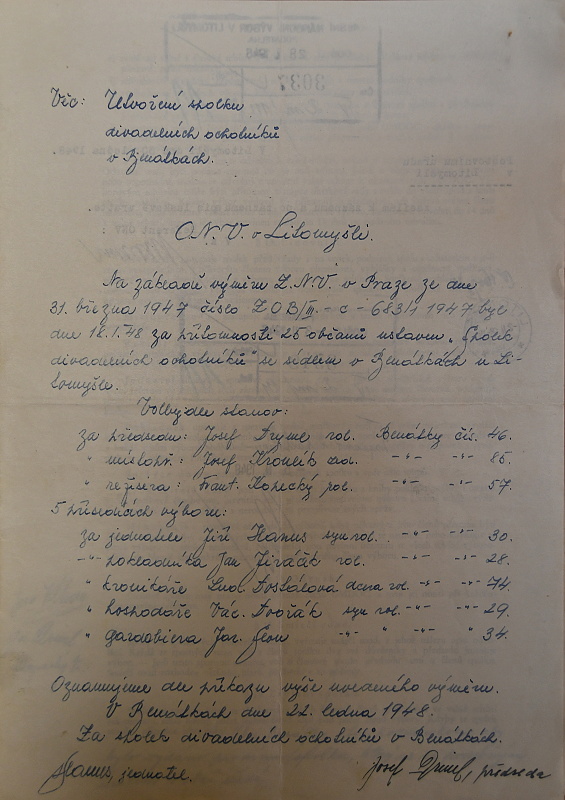 Věc: Utvoření spolku
divadelních ochotníků
v Benátkách.
O.N.V. v Litomyšli.
Na základě výměru Z.N.V. v Praze ze dne
31. března 1947 číslo ZOB/III. - c - 683/1 1947 byl
dne 18.1.48 za přítomnosti 25 občanů ustaven „Spolek
divadelních ochotníků" se sídlem v Benátkách u Li-
tomyšle.
Volby dle stanov:
za předsedu: Josef rol. Benátky čís. 46.
" místopř.: Josef Kroulík -"- -"- 85.
" režiséra: Frant. Kopecký rol. -"- -"- 57.
5 přísedících výboru:
za jednatele Jiří Hanus syn rol. -"- -"- 30.
-"- pokladníka Jan Jiráček rol. -"- -"- 28.
" kronikáře Lud. Dostálová dcera rol. -"- -"- 74.
" hospodáře Vác. Dvořák syn rol. -"- " 29.
" garderobiera Jar. -"- " -"- " 34.
Oznamujeme dle příkazu výše uvedeného výměru.
V Benátkách dne 22. ledna 1948.
Za spolek divadelních ochotníků v Benátkách.
Hanus, jednatel. Josef předseda